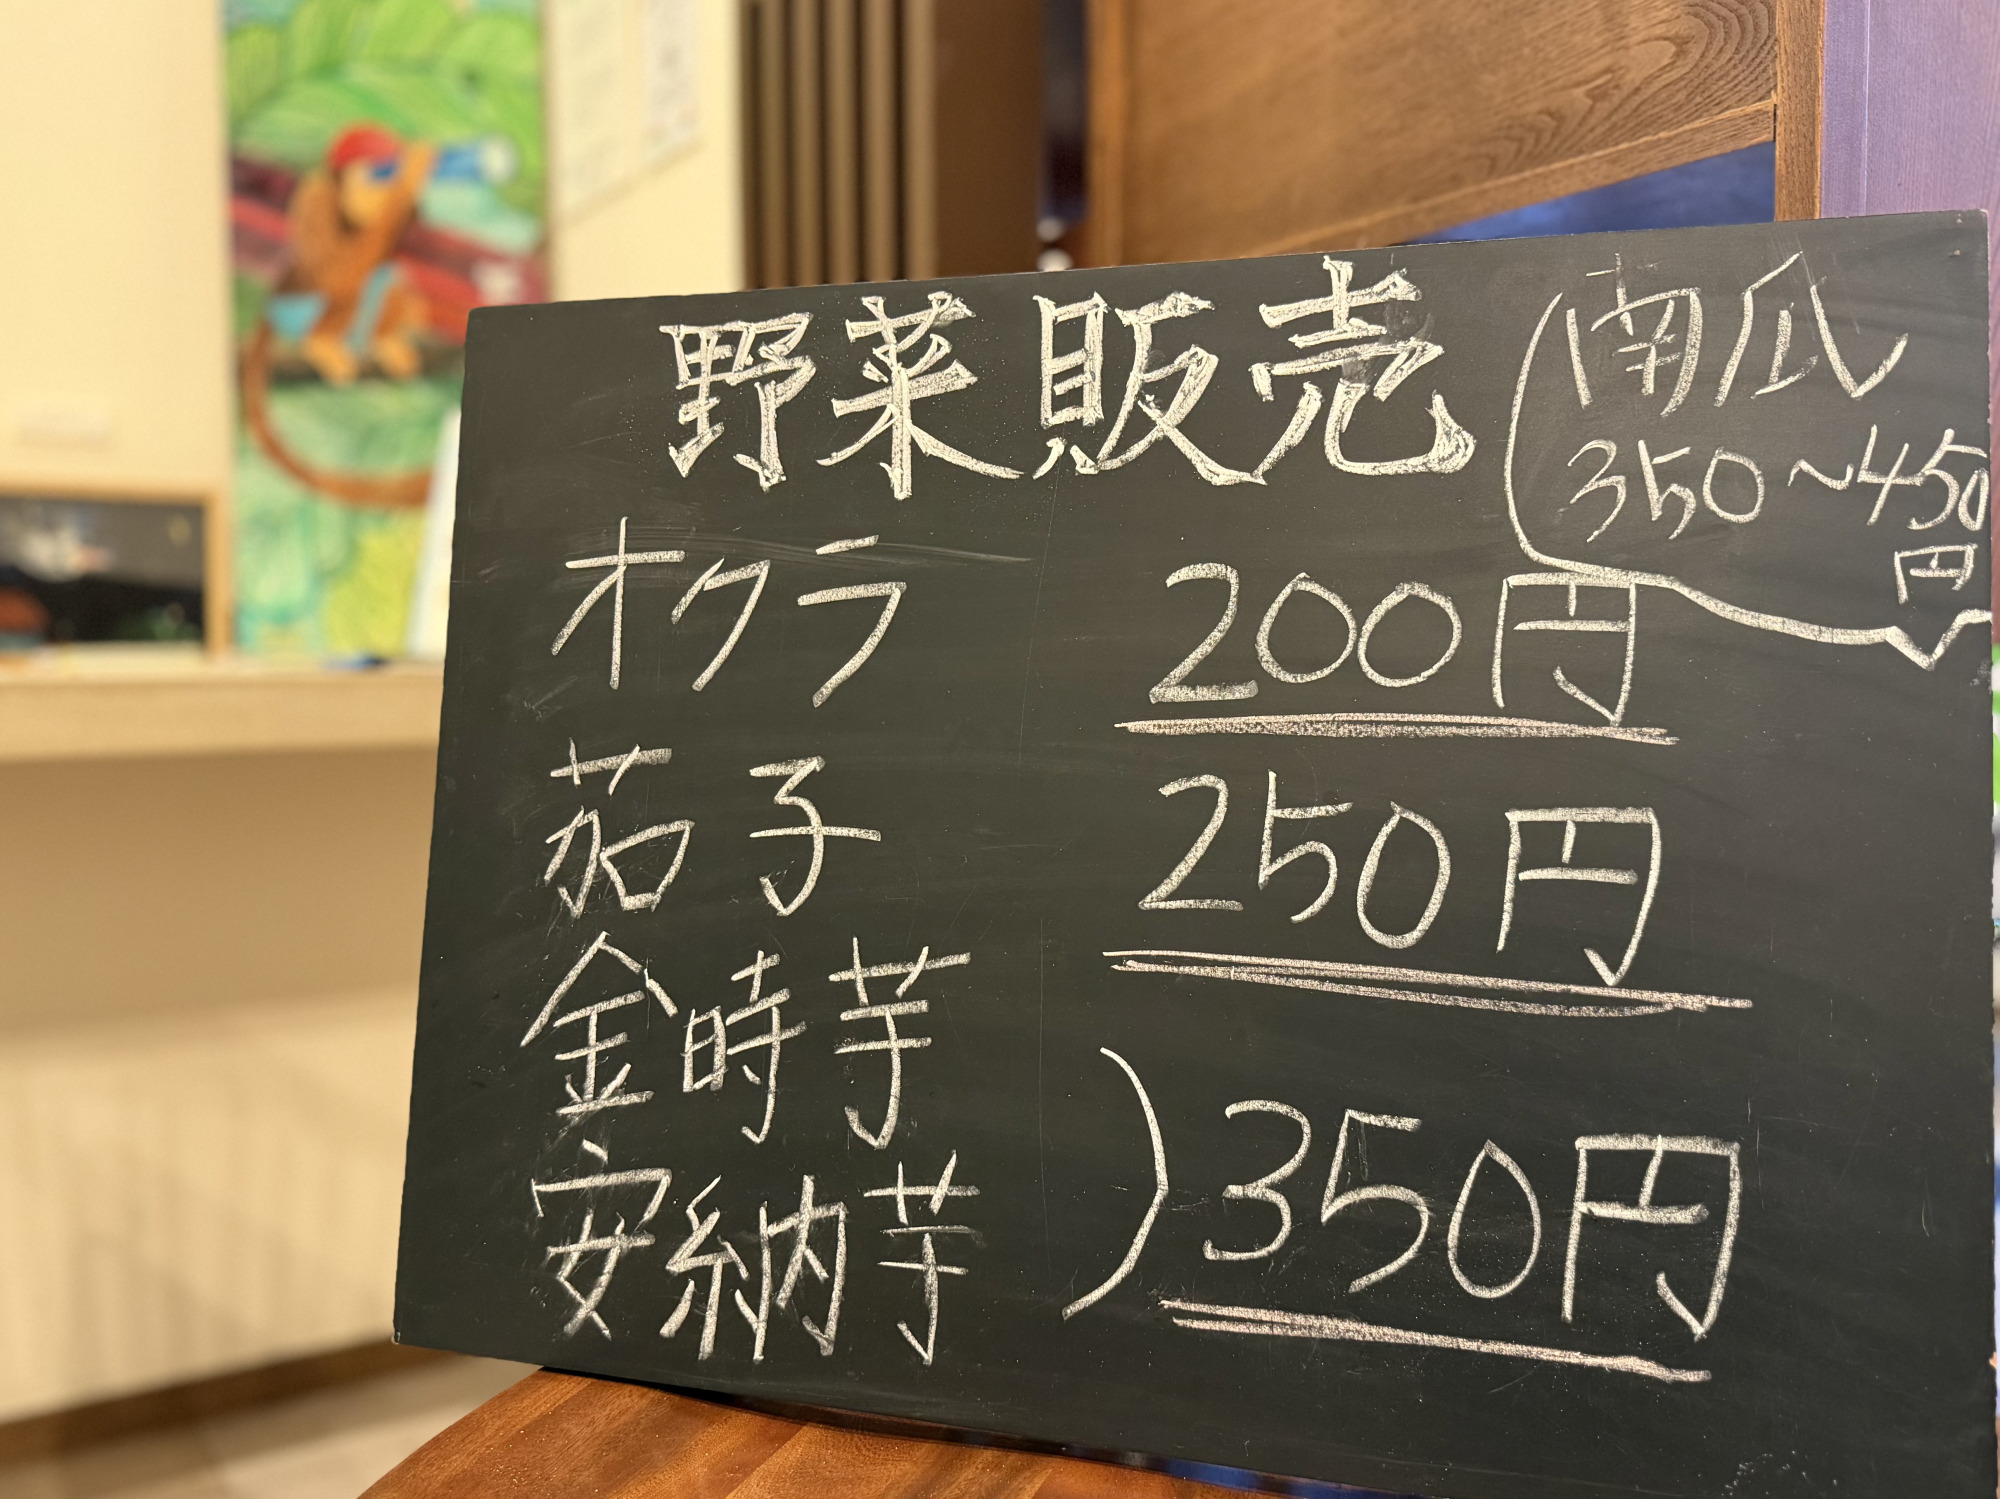 野菜販売
南瓜
350～450
円
オクラ 200円
茄子 250円
金時芋
安納芋
) 350円